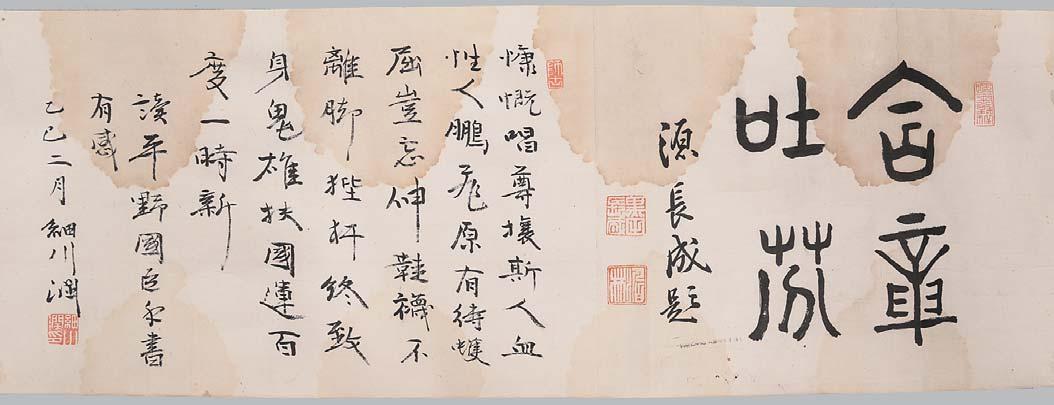 含章
吐芬
源長成題
慷慨唱尊攘斯人血
性人鵬飛原有待蠖
屈豈忘伸鞋襪不
離脚狴犴終致
身鬼雄扶國運百
度一時新
讀平野國臣書
有感
乙巳二月 細川潤